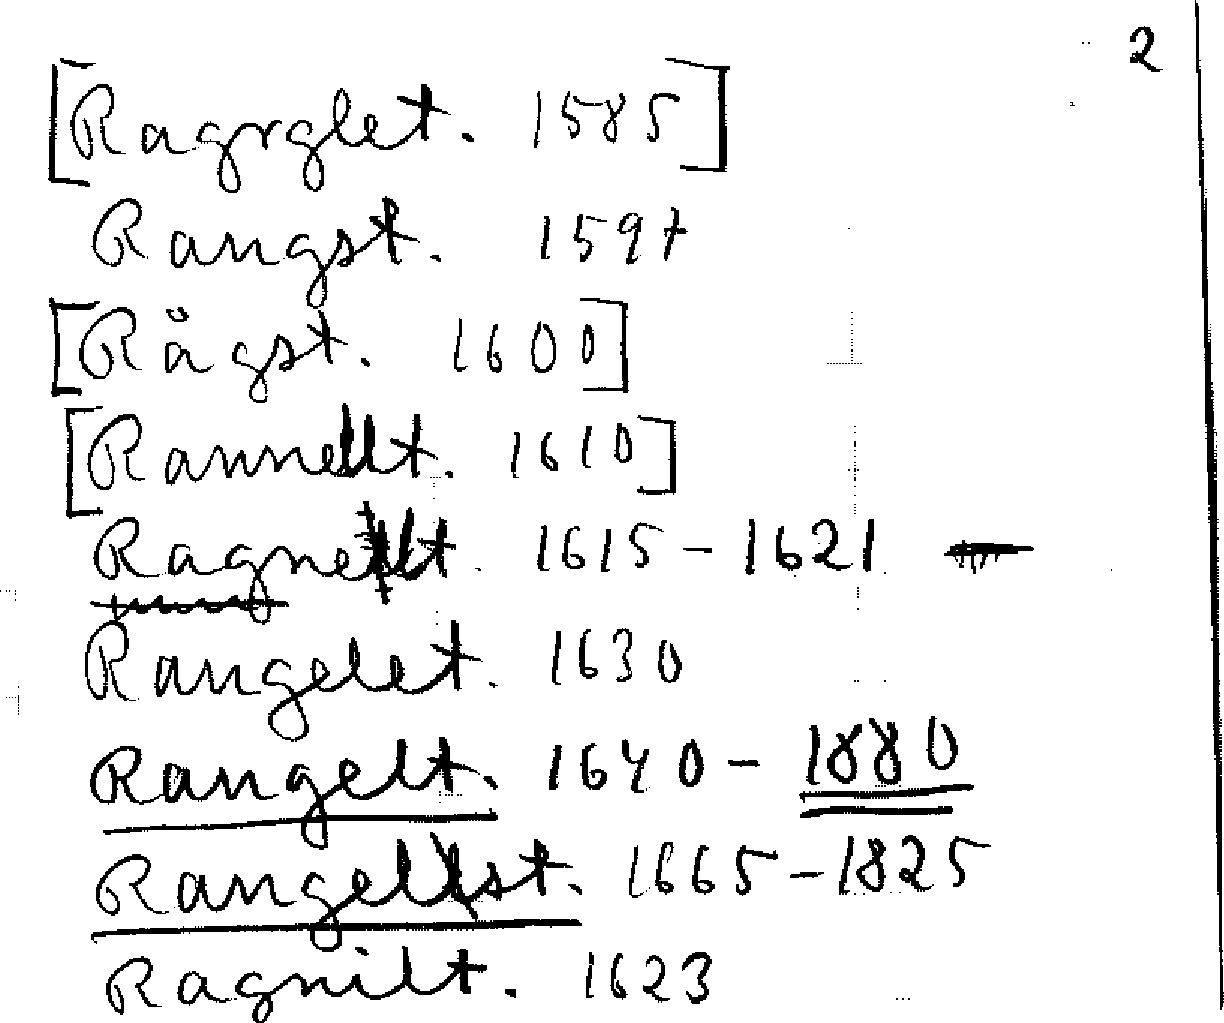 2
[Ragrglet. 1585]
Rangst. 1597
[Rågst. 1600]
[Rannellt. 1610]
Ragnellt. 1615-1621 -
Rangelet. 1630
Rangelt. 1640-1880
Rangellst. 1665-1825
Ragnilt. 1623